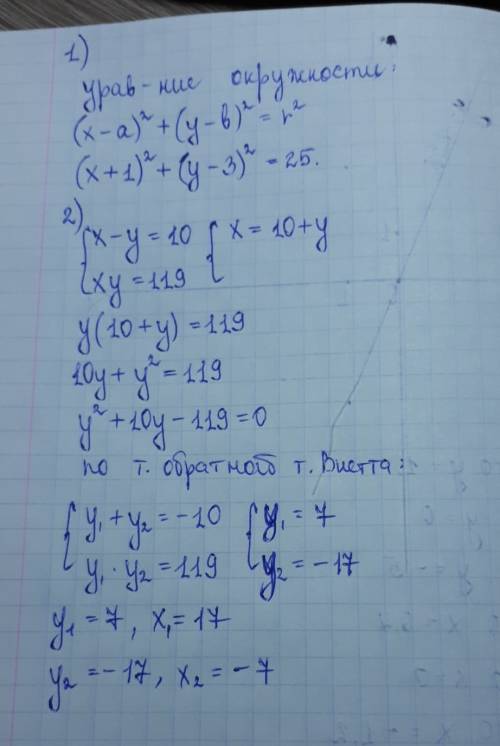 1)
урав-ние окружности:
(x-a)² + (y-b)² = r²
(x+1)² + (y-3)² = 25.
2)
{ x-y = 10 { x = 10+y
xy = 119
y(10+y) = 119
10y + y² = 119
y² + 10y - 119 = 0
по т. обратной т. Виетта:
{ y₁ + y₂ = -10 { y₁ = 7
y₁ · y₂ = 119 y₂ = -17
y₁ = 7, x₁ = 17
y₂ = -17, x₂ = -7